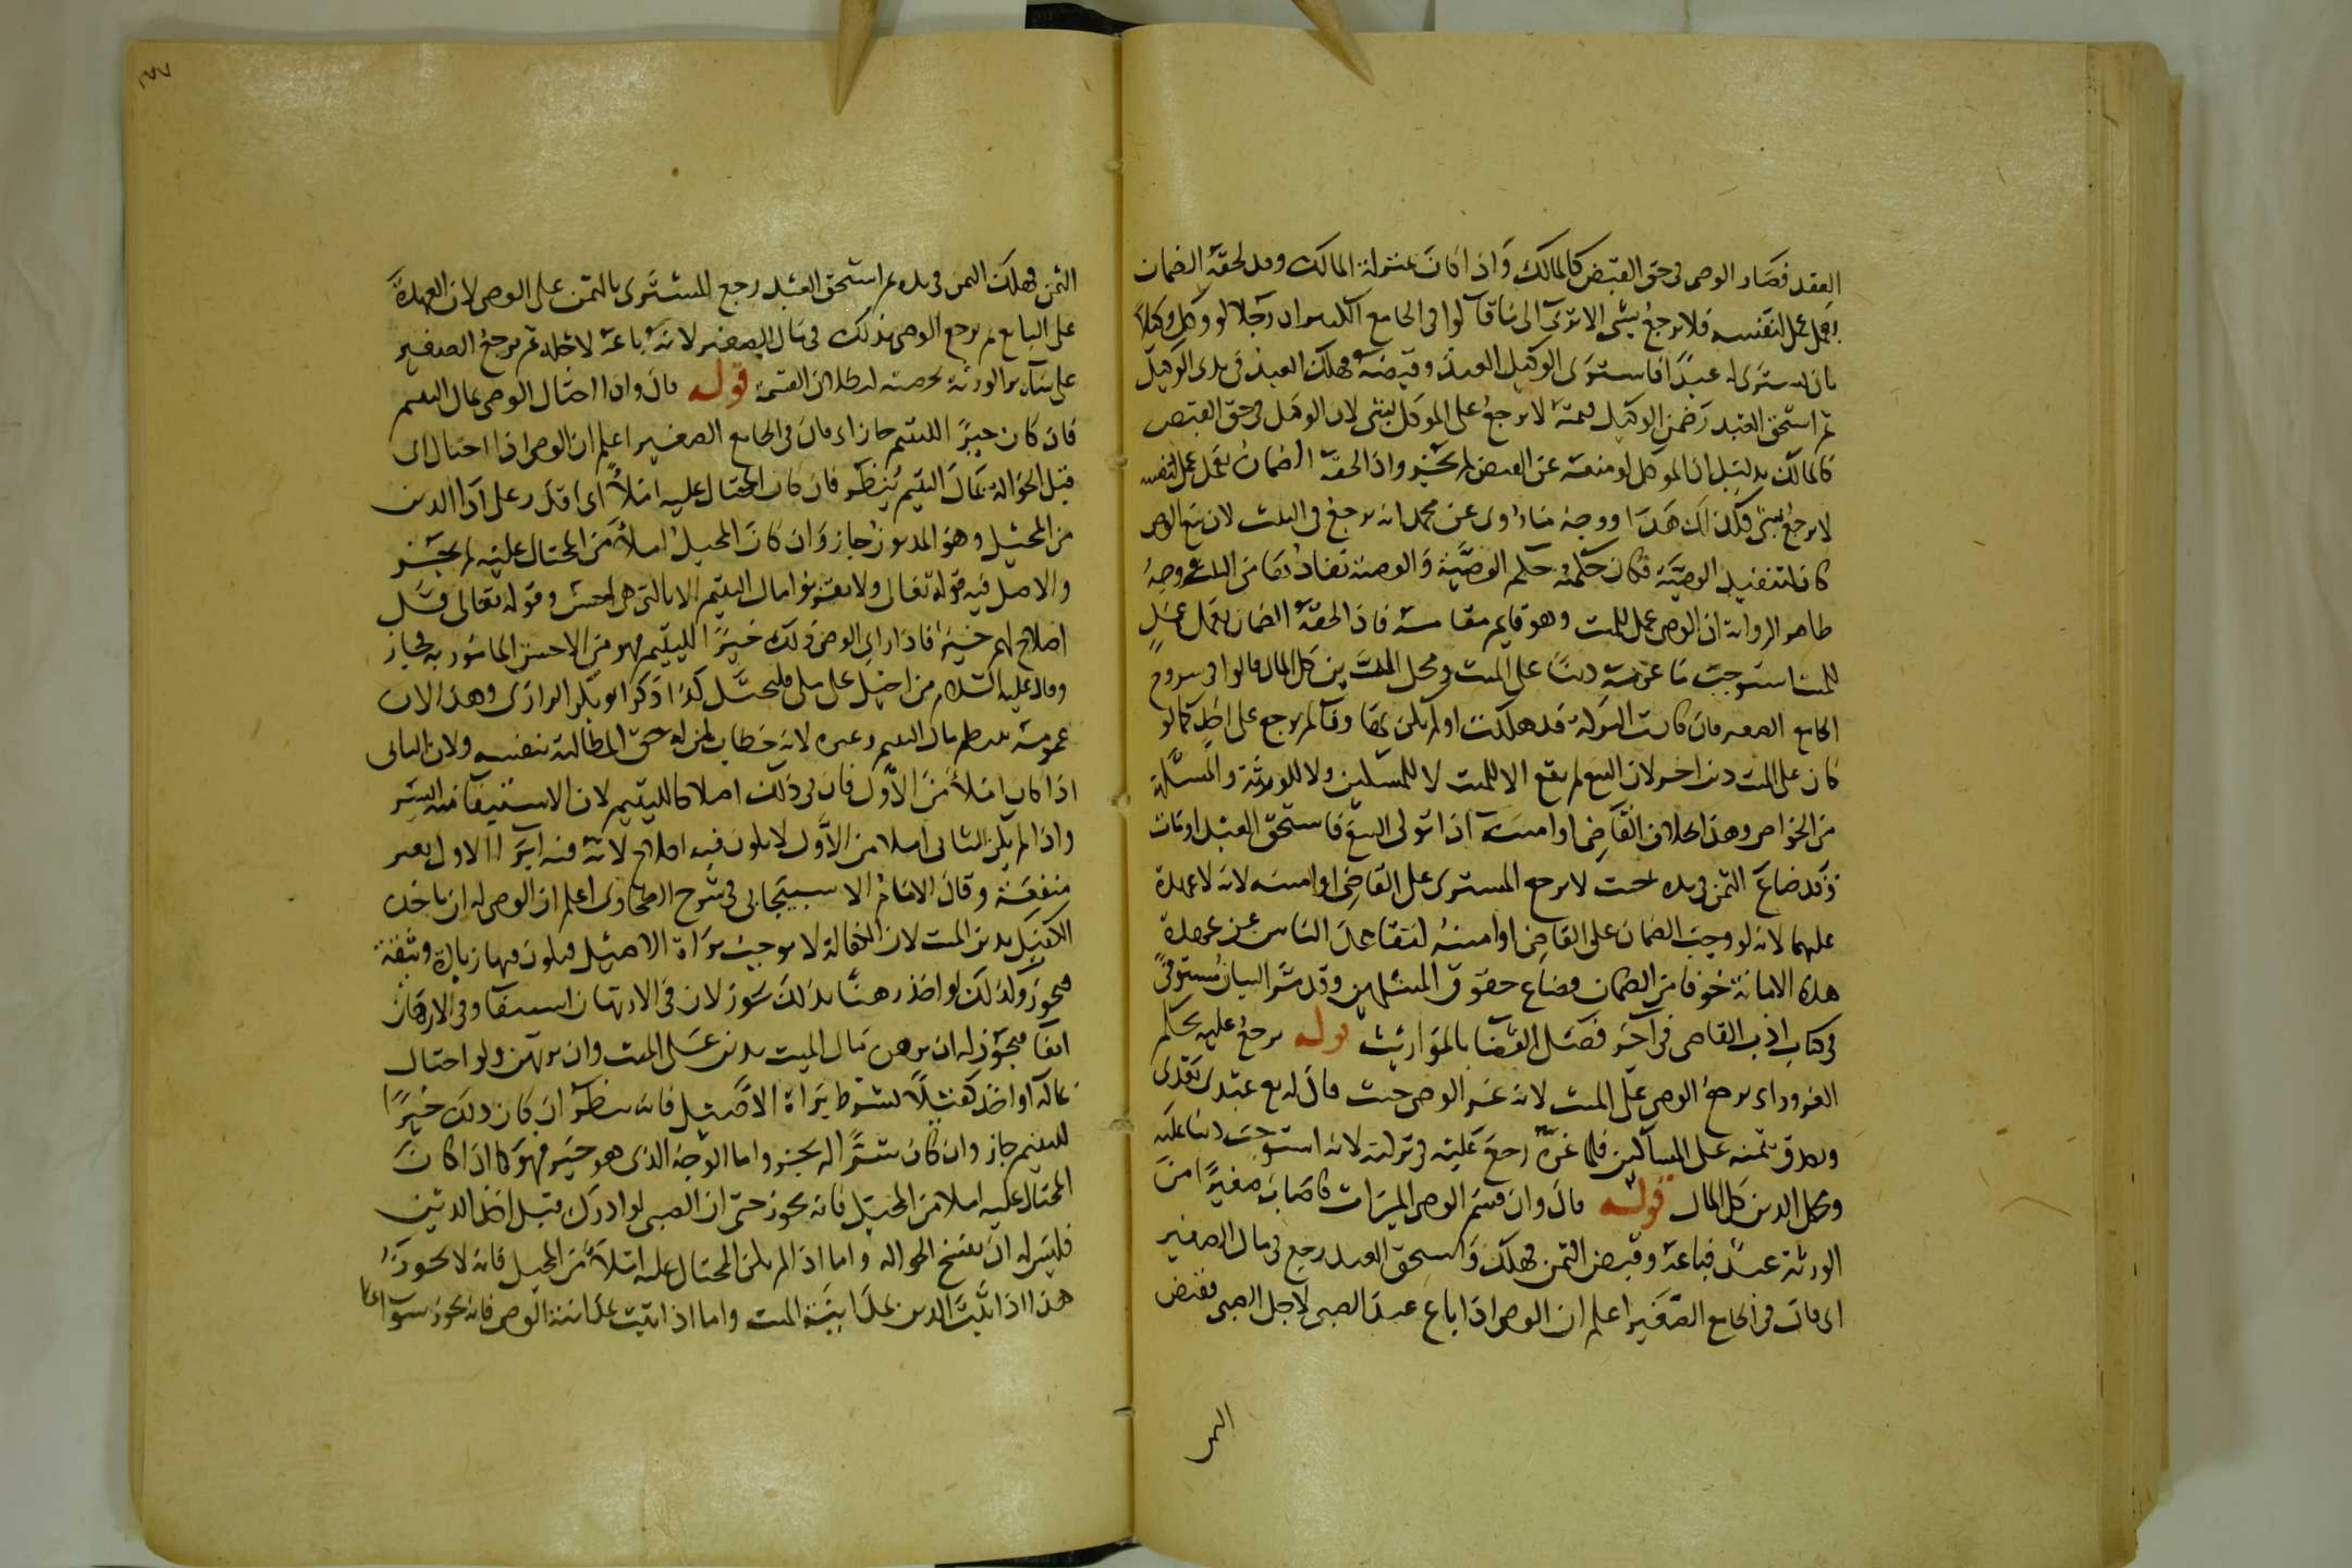 العقد فصار الوصى فى حق القبض كالمالك واذا كان بمنزلة المالك وقد لحقه الضمان
بعمل عمل لنفسه فلا يرجع بشى الا ترى الى ما قالوا فى الجامع الكبير ان رجلا لو وكل وكيلا
بان يشترى له عبدا فاشترى الوكيل العبد وقبضه فهلك العبد فى يدى الوكيل
ثم استحق العبد وضمن الوكيل قيمته لا يرجع على الموكل بشى لان الوكيل فى حق القبض
كالمالك بدليل ان الموكل لو منعه عن القبض لم يجز واذا لحقه الضمان بعمل عمل لنفسه
لا يرجع بشى فكذلك هذا ووجه ما روى عن محمد انه يرجع فى الثلث لان بيع الوصى
كان لتنفيذ الوصية فكان حكمه حكم الوصية والوصية نفاذها من الثلث ووجه
ظاهر الرواية ان الوصى عمل للميت وهو قايم مقامه فاذا لحقه الضمان بعمل عمل
للميت استوجب ما غرمه دينا على الميت ومحل الدين كل المال قالوا فى شروح
الجامع الصغير فان كانت التركة قد هلكت او لم يكن بها وفا لم يرجع على احد كما لو
كان على الميت دين اخر لان البيع لم يقع الا للميت لا للمساكين ولا للورثة والمسئلة
من الخواص وهذا بخلاف القاضى او امينه اذا تولى البيع فاستحق العبد او مات
وقد ضاع الثمن فى يده حيث لا يرجع المشترى على القاضى او امينه لانه لا عهدة
عليهما لانه لو وجب الضمان على القاضى او امينه لتقاعد الناس عن عهدة
هذه الامانة خوفا من الضمان فضاع حقوق المسلمين وقد مر البيان مستوفى
فى كتاب ادب القاضى فى آخر فصل القضا بالمواريث قوله يرجع عليه بحكم
الغرور اى يرجع الوصى على الميت لانه غر الوصى حيث قال له بع عبدى هذا
وتصدق بثمنه على المساكين فلما غره رجع عليه فى تركته لانه استوجب دينا عليه
ومحل الدين كل المال قوله قال وان قسم الوصى الميراث فاصاب صغيرا من
الورثة عبد فباعه وقبض الثمن فهلك واستحق العبد رجع فى مال الصغير
اى قال فى الجامع الصغير اعلم ان الوصى اذا باع عبد الصبى لاجل الصبى فقبض
الثمن
١٧٧
الثمن فهلك الثمن فى يده ثم استحق العبد رجع المشترى بالثمن على الوصى لان العهدة
على البايع ثم يرجع الوصى بذلك فى مال الصغير لانه باعه لاجله ثم يرجع الصغير
على سائر الورثة بحصته لبطلان القسمة قوله قال واذا احتال الوصى بمال اليتيم
فان كان خيرا لليتيم جاز اى قال فى الجامع الصغير اعلم ان الوصى اذا احتال اى
قبل الحوالة بمال اليتيم ينظر فان كان المحتال عليه املأ اى اقدر على ادا الدين
من المحيل وهو المديون جاز وان كان المحيل املأ من المحتال عليه لم يجز
والاصل فيه قوله تعالى ولا تقربوا مال اليتيم الا بالتى هى احسن وقوله تعالى قل
اصلاح لهم خير فاذا راى الوصى ذلك خيرا لليتيم فهو من الاحسن المامور به فجاز
وقال عليه السلام من احيل على ملى فليحتل كذا ذكر ابو بكر الرازى وهذا لان
عمومه ينتظم مال اليتيم وغيره لانه خطاب لمن له حق المطالبة بنفسه ولان الثانى
اذا كان املأ من الاول فان فى ذلك اصلاحا لليتيم لان الاستيفا منه ايسر
واذا لم يكن الثانى املا من الاول لا يكون فيه اصلاح لانه فيه ابرا الاول بغير
منفعة وقال الامام الاسبيجابى فى شرح الطحاوى اعلم ان الوصى له ان ياخذ
الكفيل بدين الميت لان الكفالة لا توجب براة الاصيل فيكون فيها زيادة وثيقة
فيجوز وكذلك لو اخذ رهنا بذلك يجوز لان فى الارتهان استيفا وفى الارهان
ايفا فيجوز له ان يرهن مال الميت بدين على الميت وان يرتهن ولو احتال
بماله او اخذ كفيلا بشرط براة الاصيل فانه ينظر ان كان ذلك خيرا
لليتيم جاز وان كان شرا لم يجز واما الوجه الذى هو خير فهو كما اذا كان
المحتال عليه املا من المحيل فانه يجوز حتى ان الصبى لو ادرك قبل اخذ الدين
فليس له ان يفسخ الحوالة واما اذا لم يكن المحتال عليه املأ من المحيل فانه لا يجوز
هذا اذا ثبت الدين بمداينة الميت واما اذا ثبت بمداينة الوصى فانه يجوز سوا كان